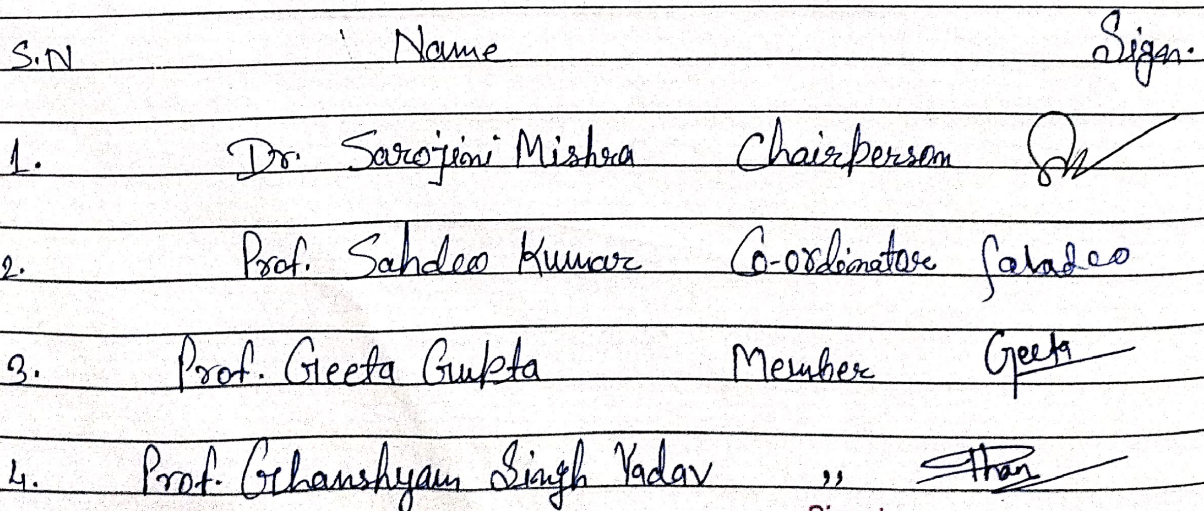 S.N Name Sign.
1. Dr. Sarojini Mishra Chairperson
2. Prof. Sahdeo Kumar Co-ordinator Sahadeo
3. Prof. Geeta Gupta Member Geeta
4. Prof. Ghanshyam Singh Yadav ,,